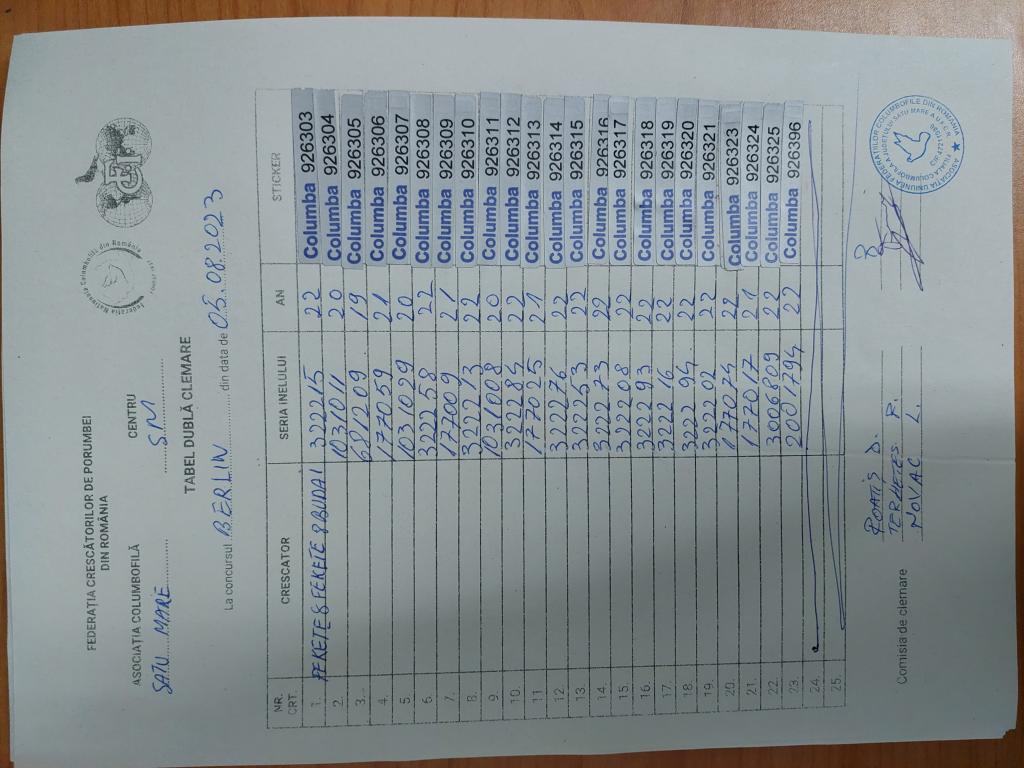 FEDERAȚIA CRESCĂTORILOR DE PORUMBEI
DIN ROMÂNIA
Federația Națională Columbofilă din România
ASOCIAȚIA COLUMBOFILĂ CENTRU
SATU MARE S.M
TABEL DUBLĂ CLEMARE
La concursul BERLIN din data de 05.08.2023
NR. CRT. CRESCATOR SERIA INELULUI AN STICKER
1. FEKETE & FEKETE & BUDAI 322215 22 Columba 926303
2. 1031011 20 Columba 926304
3. 681209 19 Columba 926305
4. 177059 21 Columba 926306
5. 1031029 20 Columba 926307
6. 322258 22 Columba 926308
7. 177009 21 Columba 926309
8. 322213 22 Columba 926310
9. 1031008 20 Columba 926311
10. 322284 22 Columba 926312
11 177025 21 Columba 926313
12. 322276 22 Columba 926314
13. 322253 22 Columba 926315
14. 322273 22 Columba 926316
15. 322208 22 Columba 926317
16. 322293 22 Columba 926318
17. 322216 22 Columba 926319
18. 322294 22 Columba 926320
19. 322202 22 Columba 926321
20. 177074 22 Columba 926323
21. 177017 21 Columba 926324
22. 3006809 22 Columba 926325
23. 2001794 22 Columba 926396
24.
25.
Comisia de clemare
ROATIȘ D.
TERHEȘ R.
NOVAC L.
ASOCIAȚIA UNIUNEA FEDERAȚIILOR COLUMBOFILE DIN ROMÂNIA